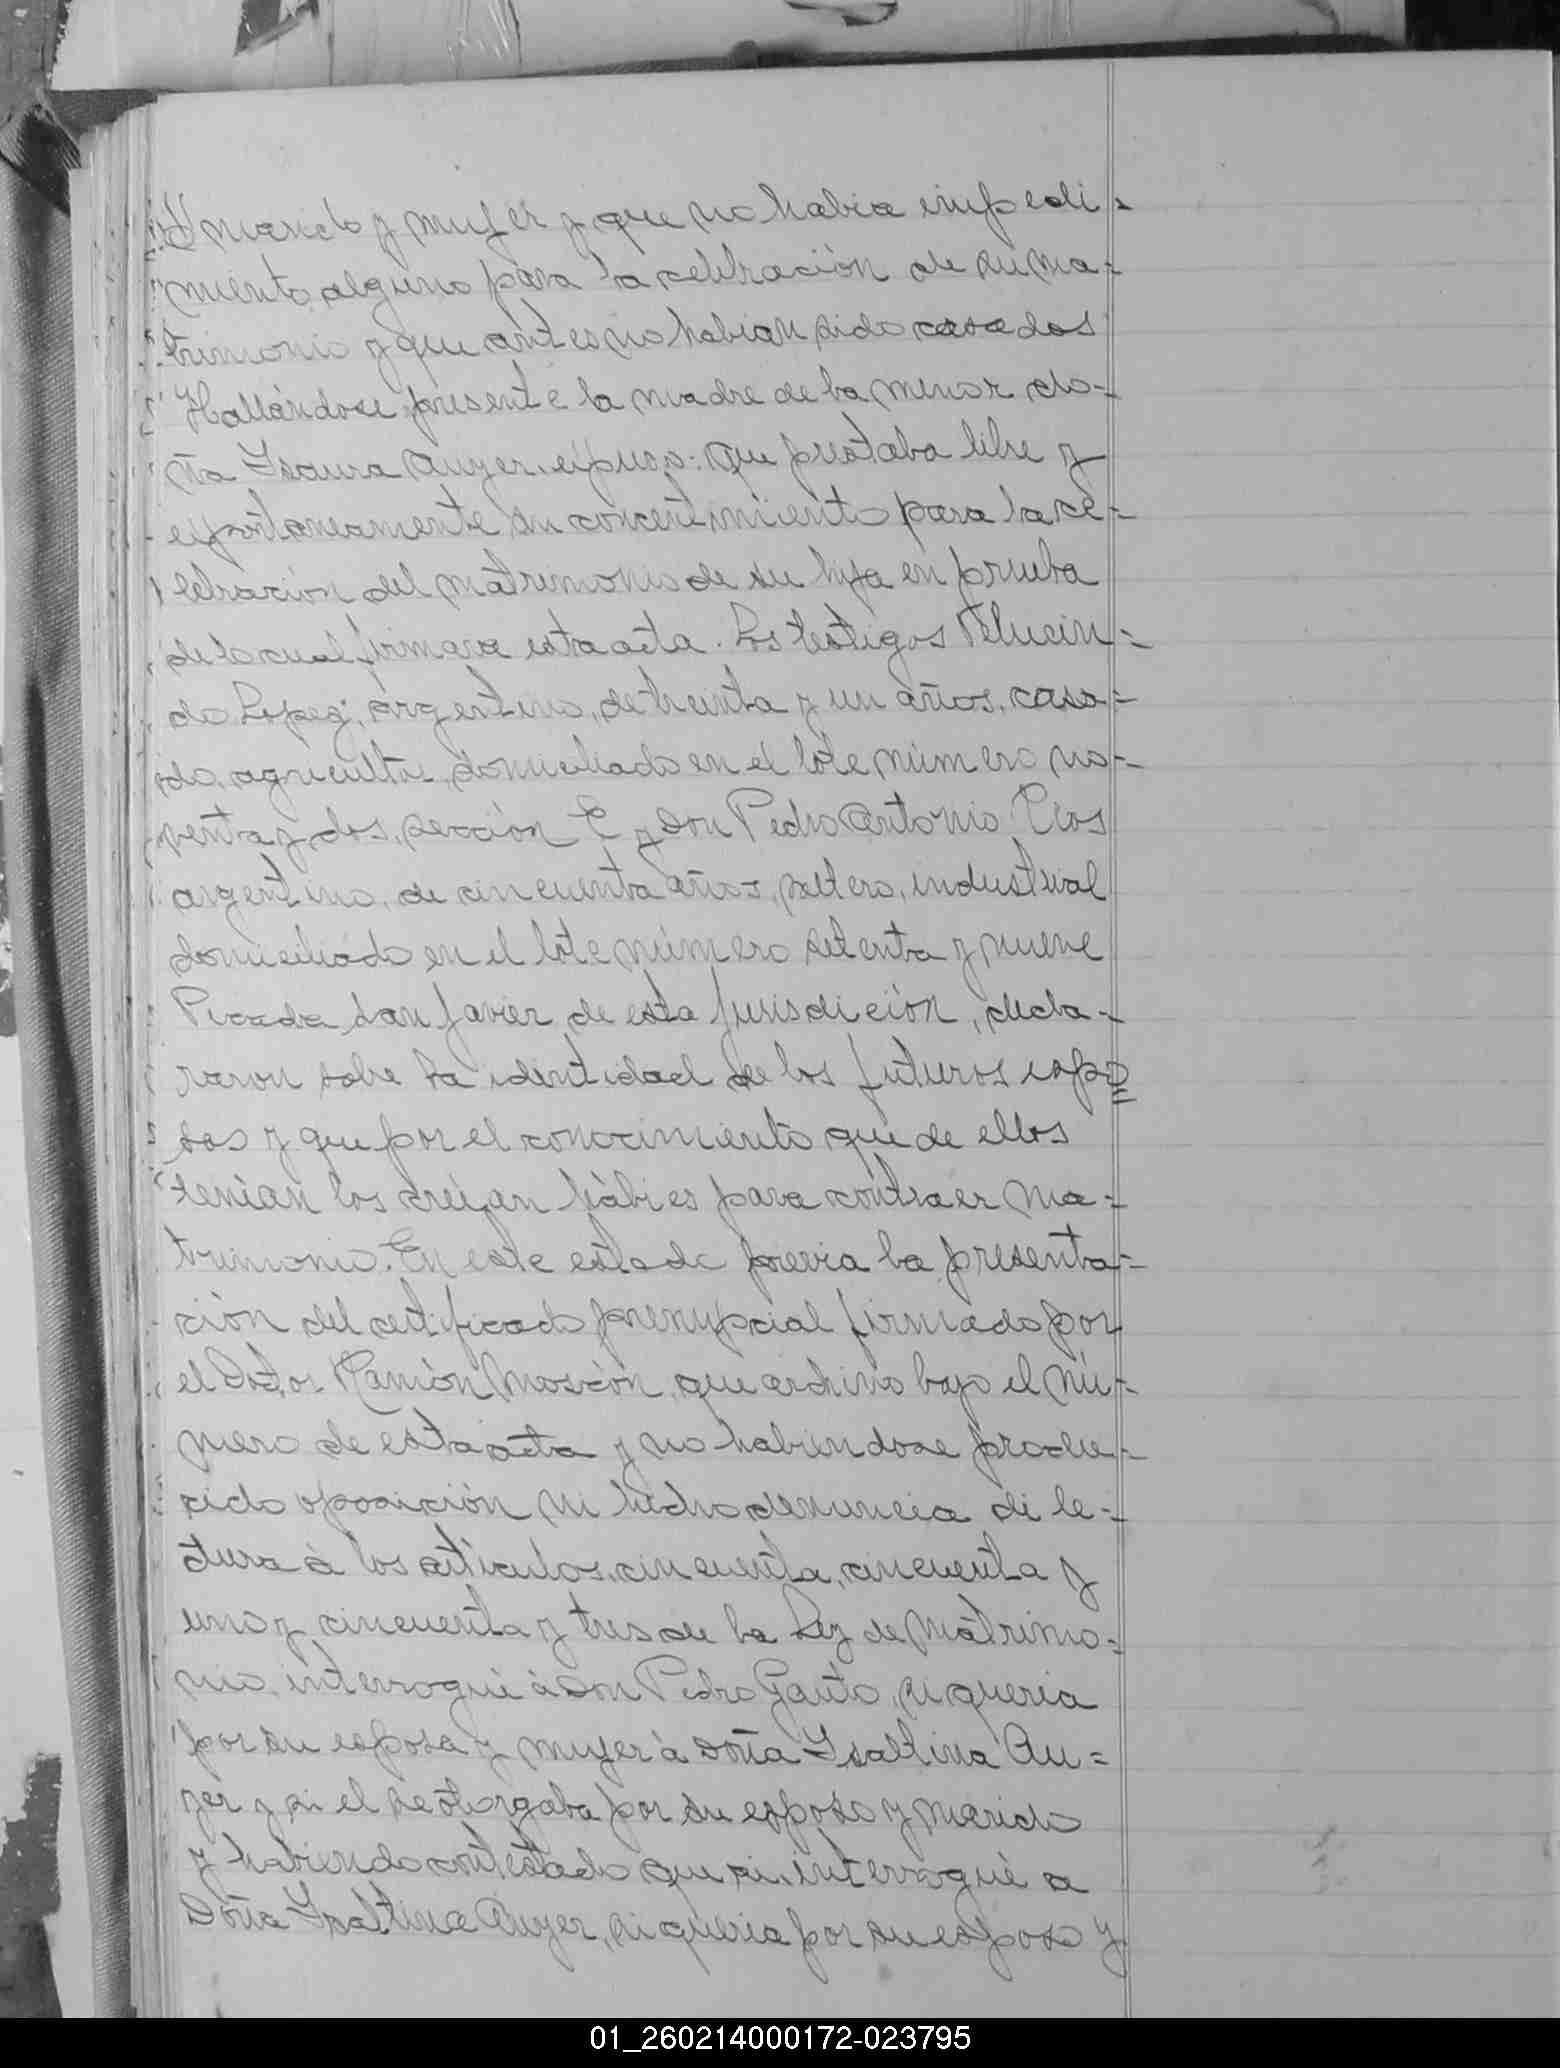 marido y mujer y que no habia impedi-
miento alguno para la celebración de su ma-
trimonio y que antes no habian sido casados
Hallándose presente la madre de la menor do-
ña Isaura Auyer, expuso: que prestaba libre y
espontaneamente su concentimiento para la ce-
lebración del matrimonio de su hija en prueba
de lo cual firmara esta acta. Los testigos Belucin-
do Lopez, argentino, de treinta y un años, casa-
do, agricultor, domiciliado en el lote número no-
venta y dos, sección E y Don Pedro Antonio Rios
argentino, de cincuenta años, soltero, industrial
domiciliado en el lote número setenta y nueve
Picada San Javier de esta jurisdición, decla-
raron sobre la identidad de los futuros espo=
sos y que por el conocimiento que de ellos
tenían los creían hábies para contraer ma-
trimonio. En este estado previa la presenta-
ción del certificado prenupcial firmado por
el Doctor Ramón Mascón, que archivo bajo el nú-
mero de esta acta y no habiendose produ-
cido oposición ni hecho denuncia di le-
ctura á los artículos, cincuenta, cincuenta y
uno y cincuenta y tres de la Ley de Matrimo-
nio, interrogué á Don Pedro Gauto, si queria
por su esposa y mujer á Doña Isaltina Au=
yer y si el se otorgaba por su esposo y marido
y habiendo contestado que si, interrogué a
Doña Isaltina Auyer, si queria por su esposo y
01_260214000172-023795